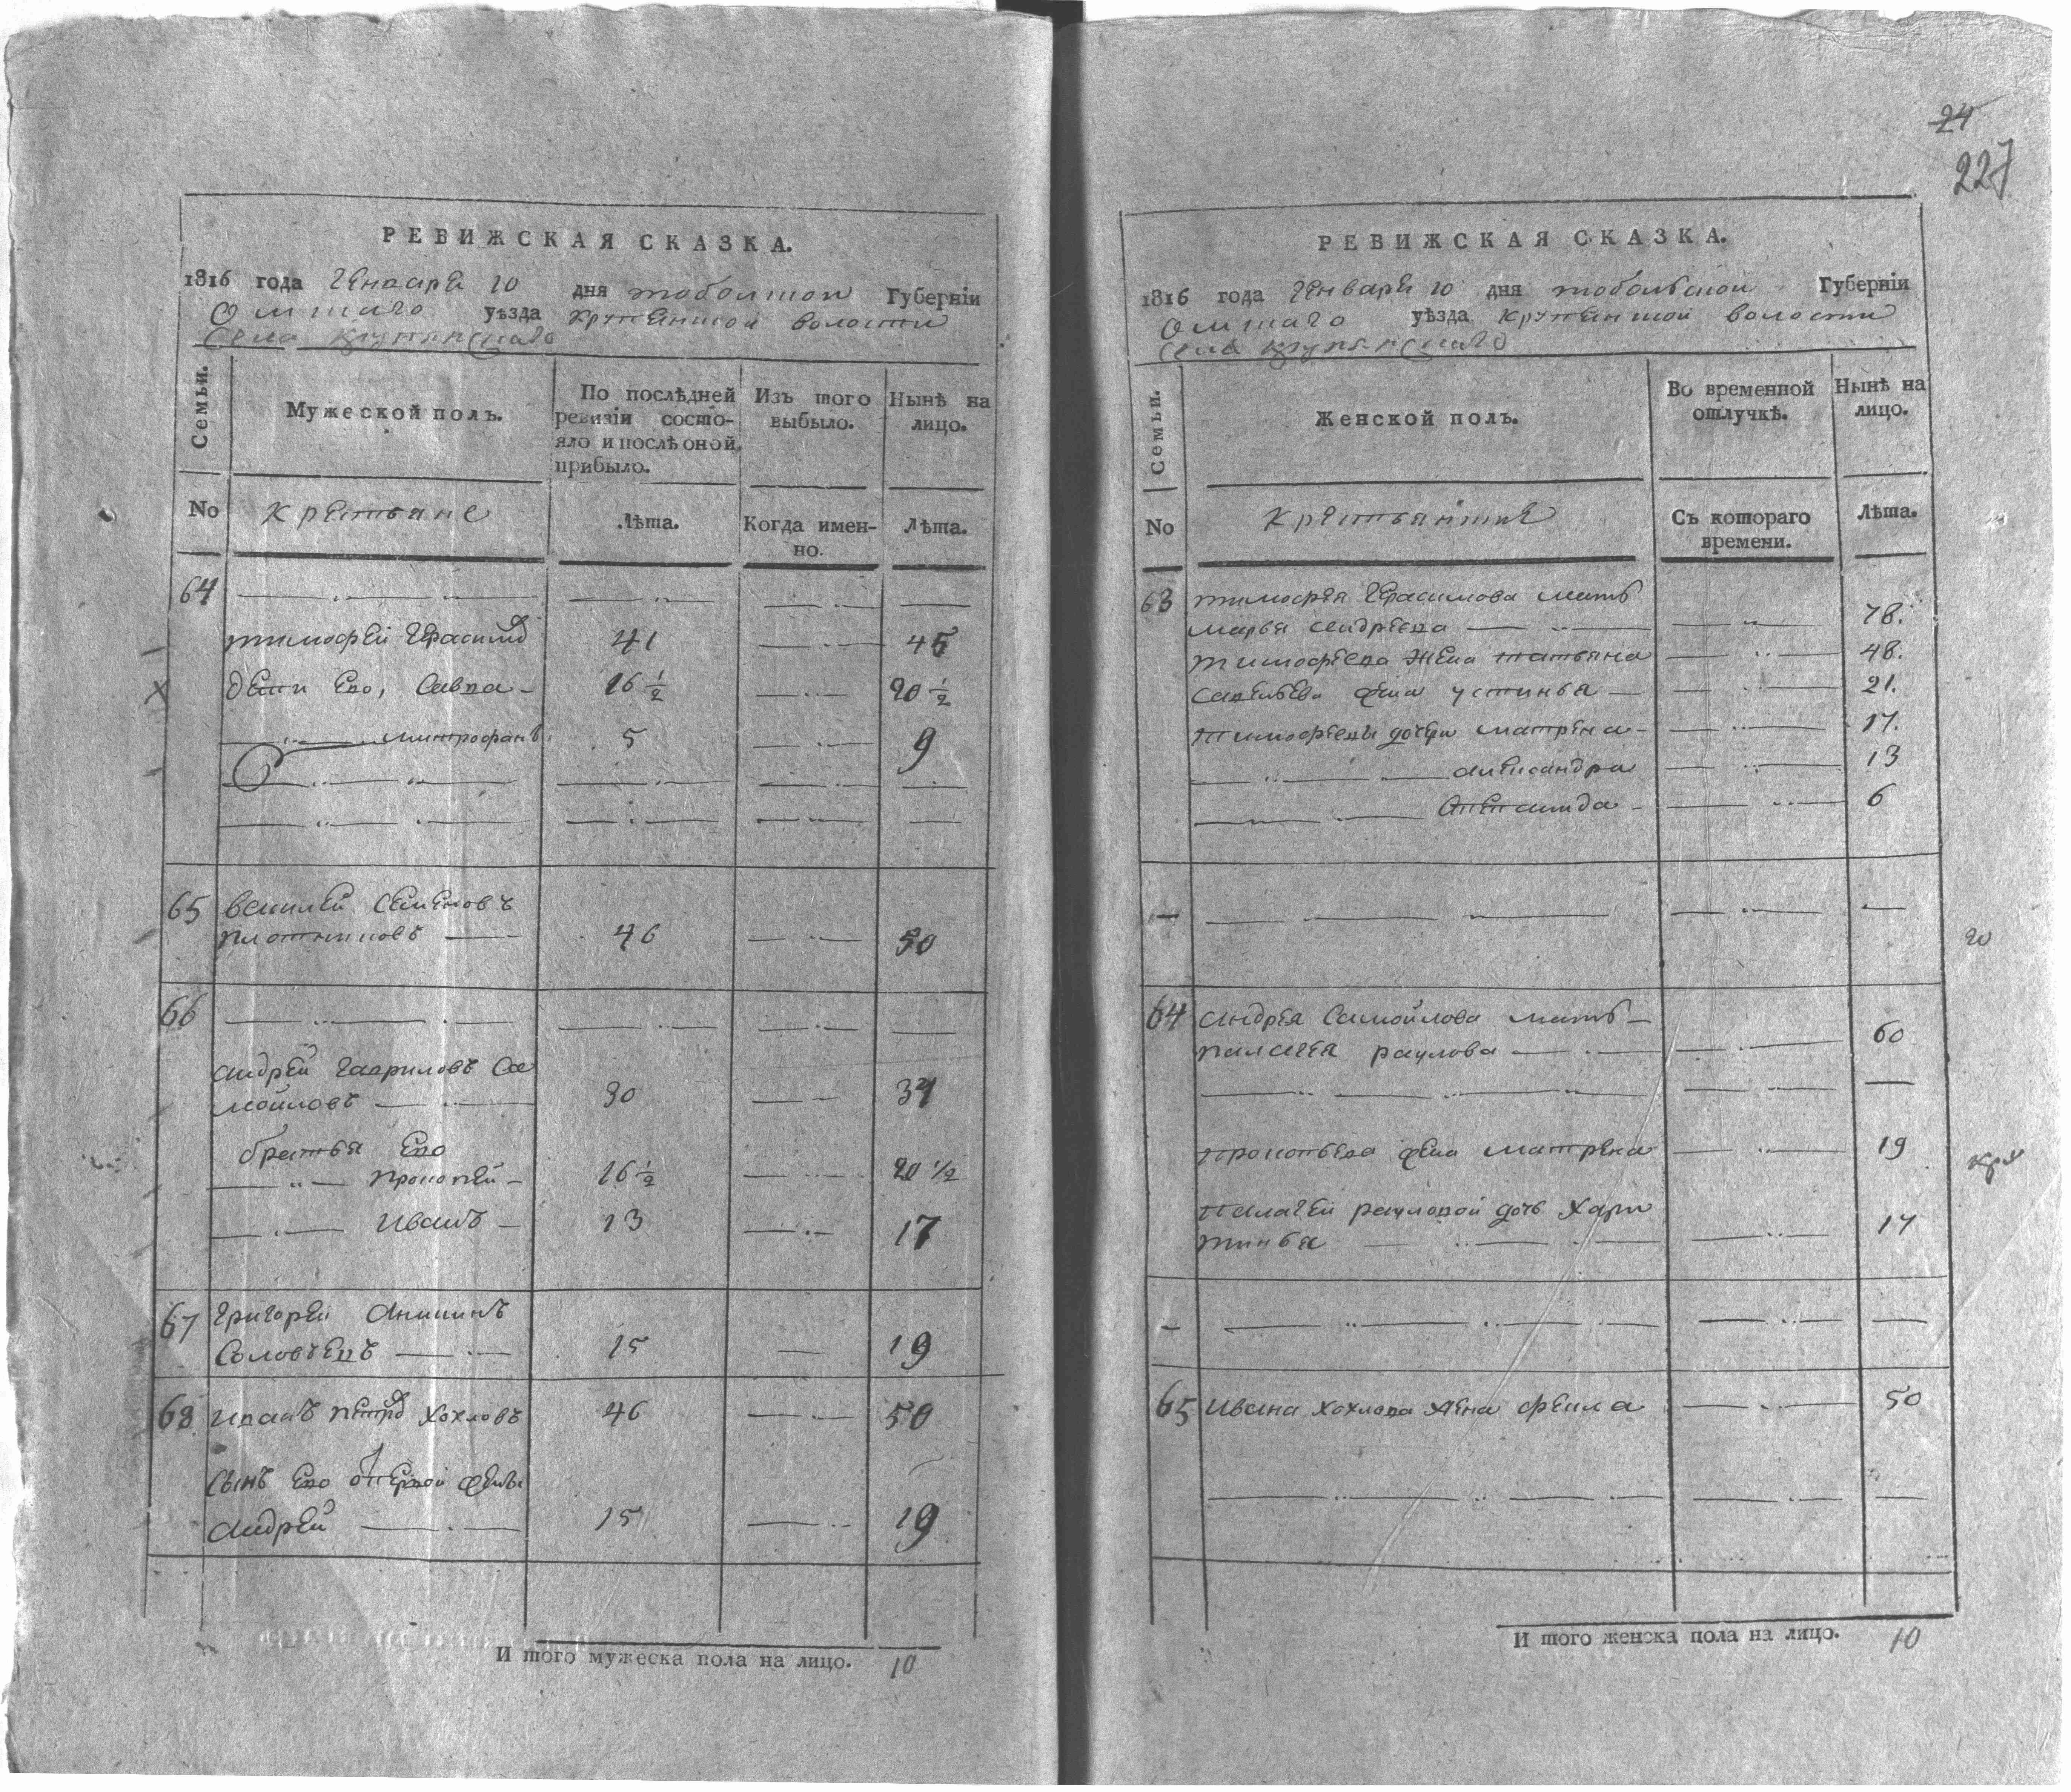 РЕВИЖСКАЯ СКАЗКА.
1816 года Генваря 10 дня тобольской Губерніи
Омскаго уѣзда крупенской волости
Села крупянскаго
Семьи.
Мужеской полъ.
По послѣдней ревизіи состо-
яло и послѣ оной прибыло.
Изъ того выбыло.
Нынѣ на лицо.
No
крестьяне
Лѣта.
Когда имен-
но.
Лѣта.
64
тимофей Герасимов 41 45
дети Ево, Савва 16 ½ 20 ½
митрофанъ 5 9
65 василей Семеновъ
плотниковъ 46 50
66
андрей гавриловъ Са
мойловъ 30 34
братья Ево
прокопей 16 ½ 20 ½
Иванъ 13 17
67 григорей Аникинъ
Соловьевъ 15 19
68 иванъ петров хохловъ 46 50
Сынъ Ево от первой жены
андрей 15 19
И того мужеска пола на лицо. 10
24
227
РЕВИЖСКАЯ СКАЗКА.
1816 года Генваря 10 дня тобольской Губерніи
Омскаго уѣзда крупенской волости
Села крупянскаго
Семьи.
Женской полъ.
Во временной
отлучкѣ.
Нынѣ на
лицо.
No
крестьянские
Съ котораго
времени.
Лѣта.
63 тимофея Герасимова мать
марья андреева 78.
тимофеева Жена татьяна 48.
савельева жена устинья 21.
тимофеевы дочери матрена 17.
александра 13
6
—
20
64 андрея Самойлова мать
палагея раулова 60
прокопьева жена матрена 19
кре
палагеи рауловой дочь Хари
тинья 17
65 ивана хохлова жена фекла 50
И того женска пола на лицо. 10